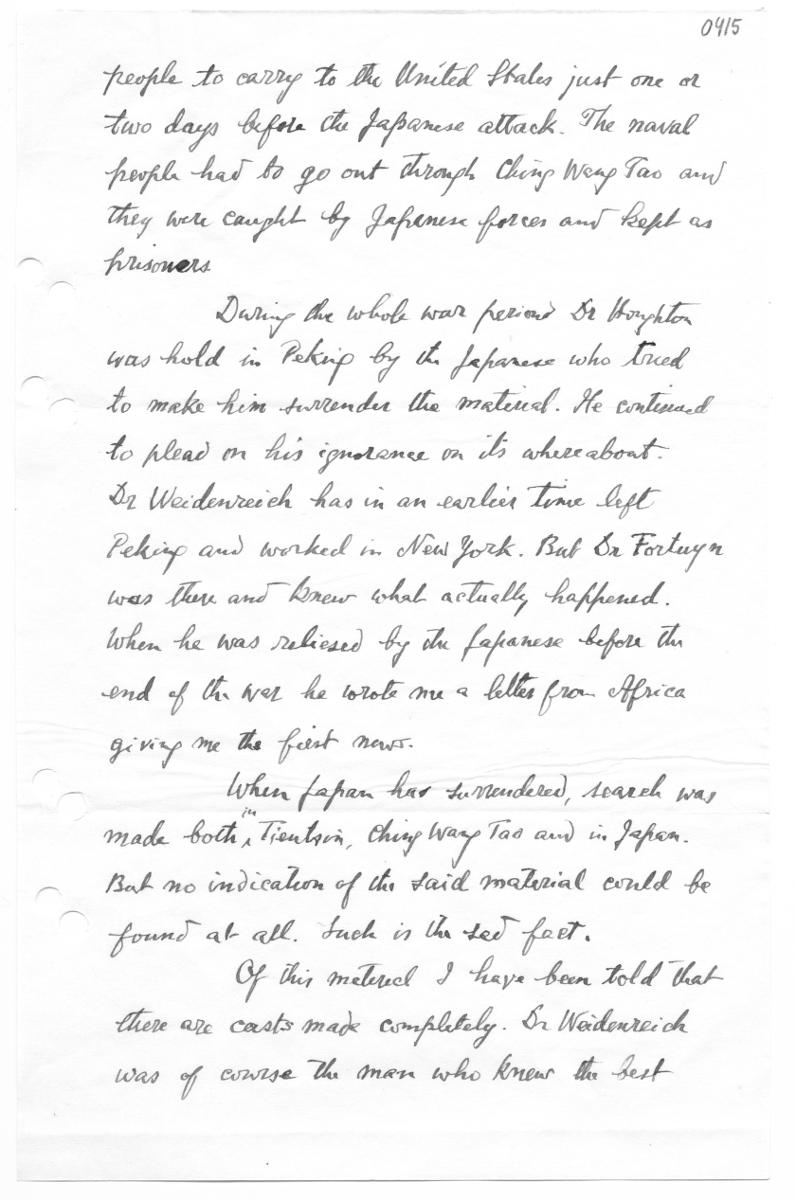 0415
people to carry to the United States just one or
two days before the Japanese attack. The naval
people had to go out through Ching Wang Tao and
they were caught by Japanese forces and kept as
prisoners
During the whole war period Dr Houghton
was hold in Peking by the Japanese who tried
to make him surrender the material. He continued
to plead on his ignorance on its whereabout.
Dr Weidenreich has in an earlier time left
Peking and worked in New York. But Dr Fortuyn
was there and knew what actually happened.
When he was reliesed by the Japanese before the
end of the war he wrote me a letter from Africa
giving me the first news.
When Japan has surrendered, search was
made both in Tientsin, Ching Wang Tao and in Japan.
But no indication of the said material could be
found at all. Such is the sad fact.
Of this material I have been told that
there are casts made completely. Dr Weidenreich
was of course the man who knew the best